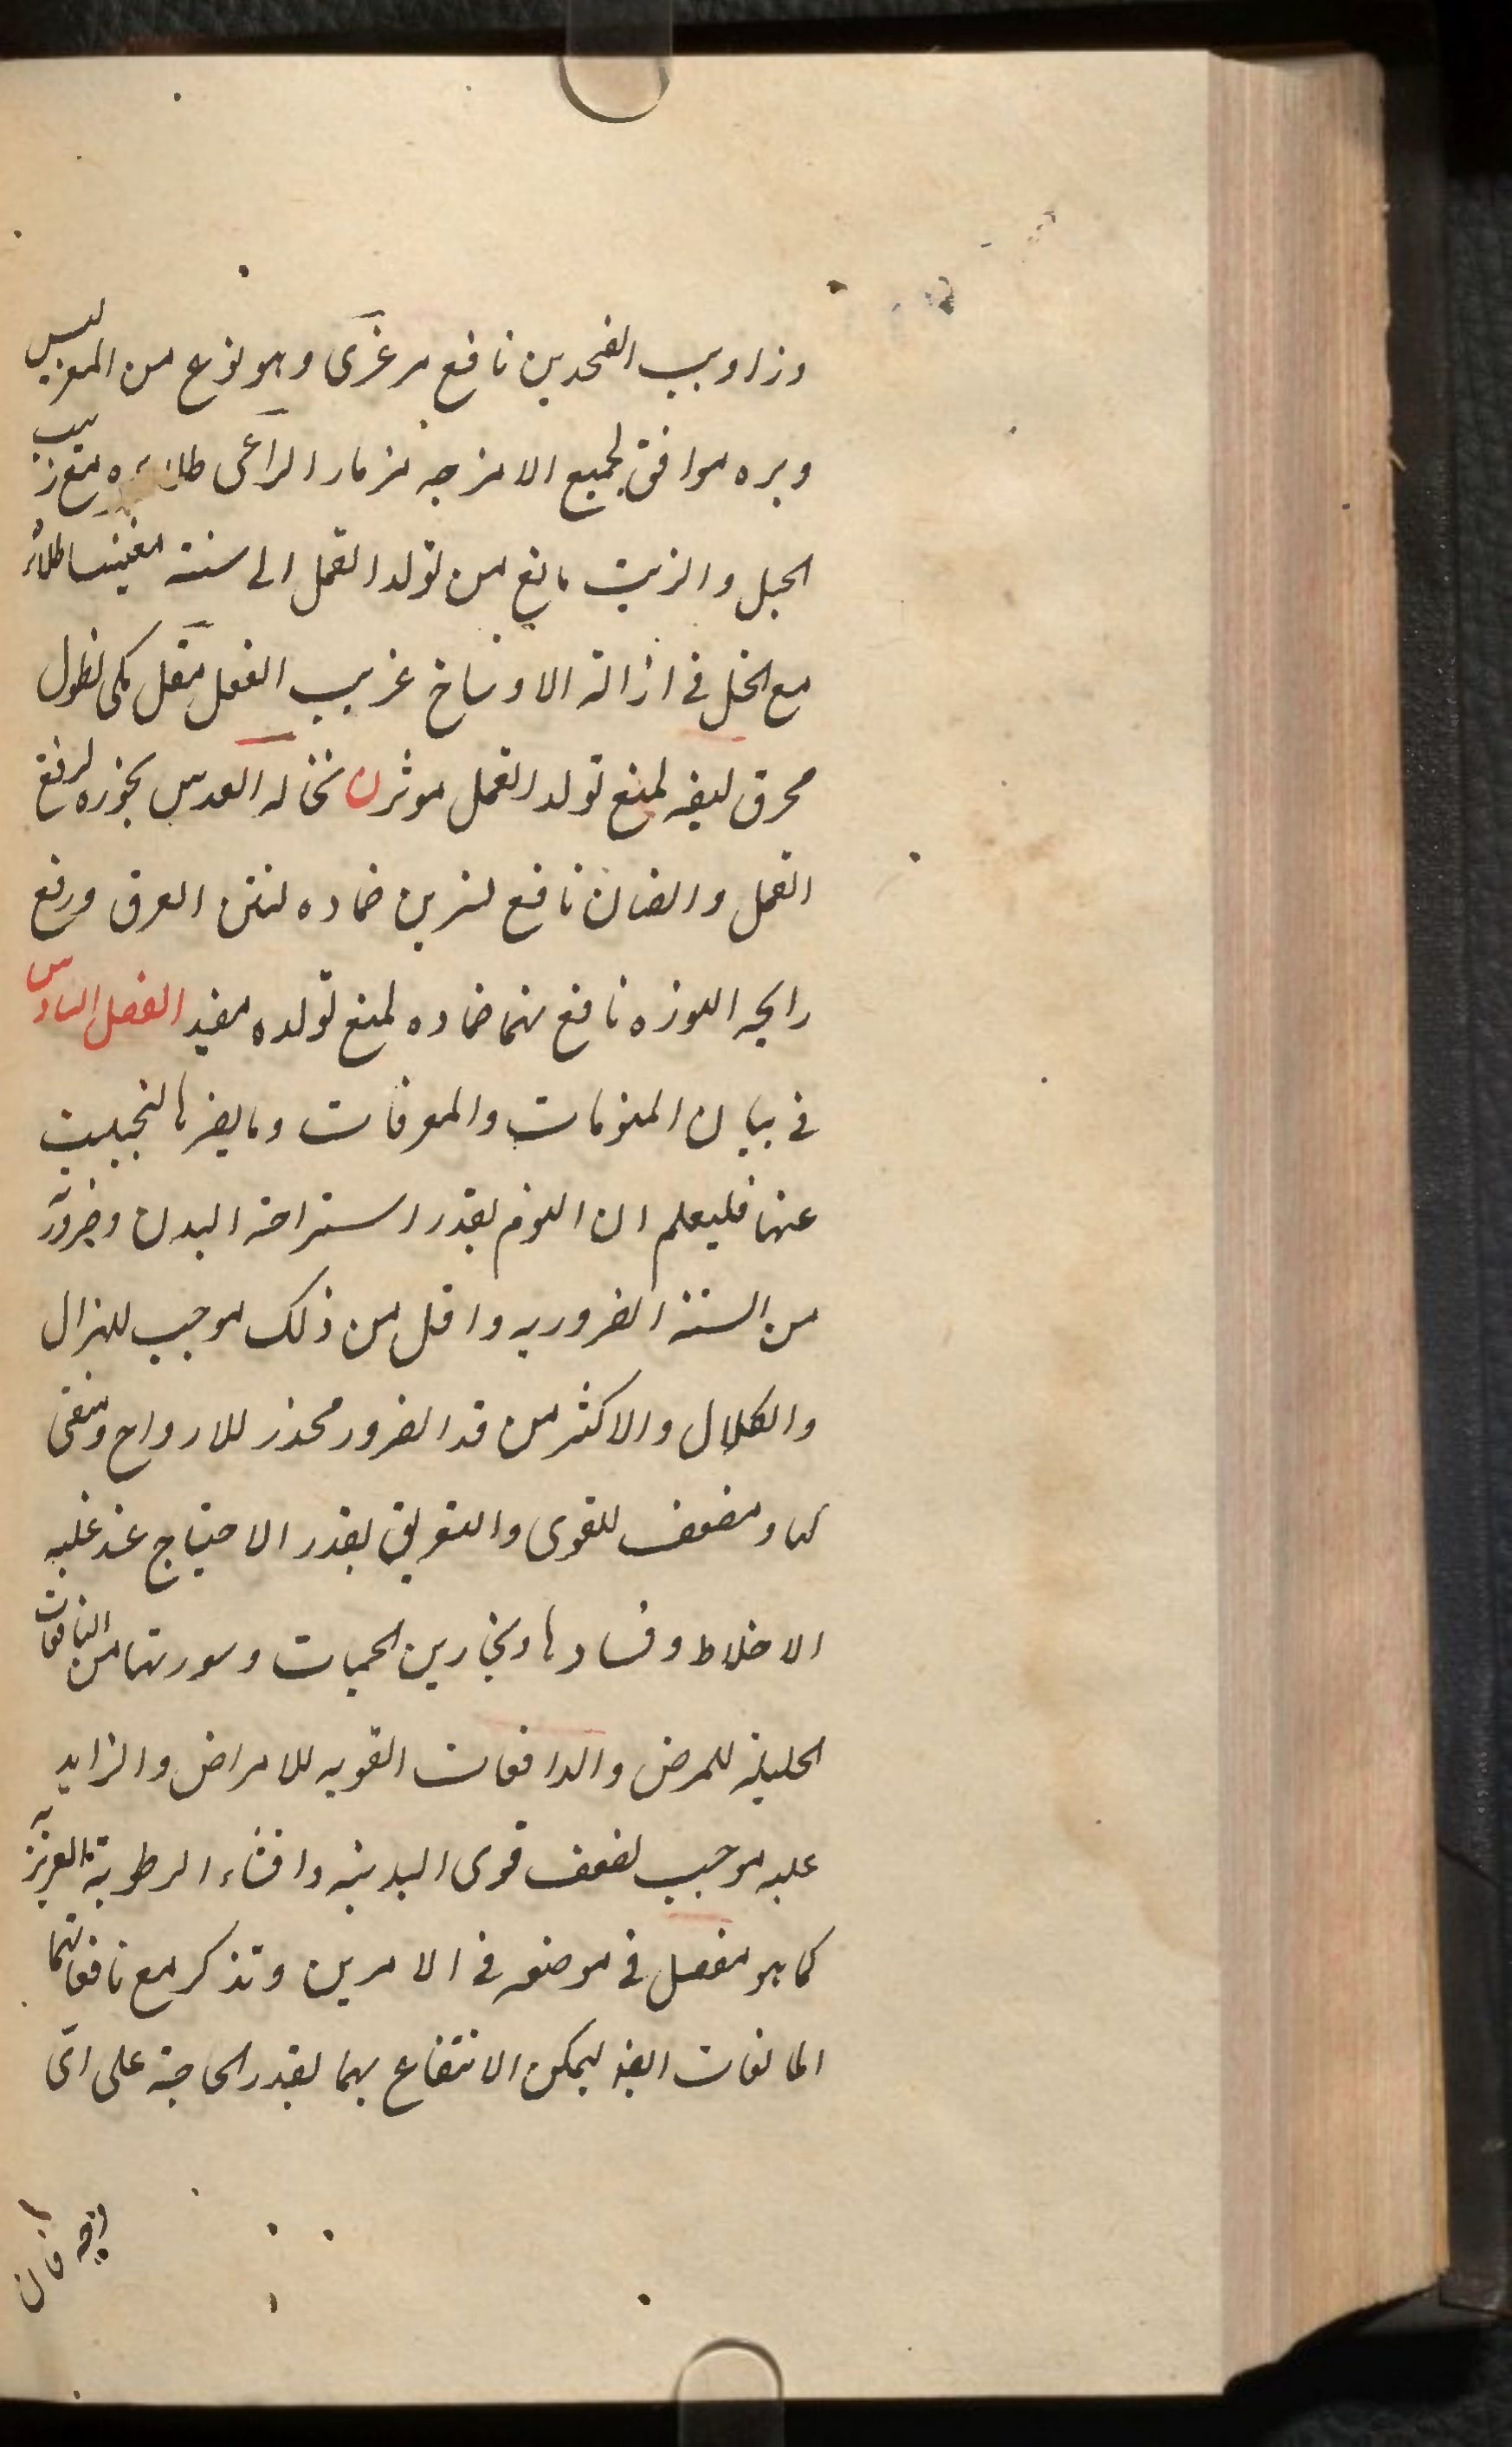 وزاويب الفخذين نافع مرغزى وهو نوع من المعز لبس
وبره موافق لجميع الامزجه مزمار الراعى طلاؤه مع زبيب
الجبل والزيت مانع من تولد القمل الى سنة مغنيسا طلاؤه
مع الخل فى ازالة الاوساخ غريب الفعل مقل مكى نطول
محرق ليفه لمنع تولد القمل موثر ن نخاله العدس بخوره لرفع
القمل والصنان نافع نسرين ضماده لنتن العرق ورفع
رايحه النوره نافع نمام ضماده لمنع تولده مفيد الفصل السادس
فى بيان المنومات والمعرقات وما يضرها لتجتنب
عنها فليعلم ان النوم بقدر استراحة البدن وضرورة
من الستة الضروريه واقل من ذلك موجب للهزال
والكلال والاكثر من قدر الضرور مخدر للارواح ومنقى
لها ومضعف للقوى والتعريق بقدر الاحتياج عند غلبه
الاخلاط وفسادها وبخارين الحميات وسورتها من النافعات
الجليلة للمرض والدافعات القويه للامراض والزايد
عليه موجب لضعف قوى البدنيه وافناء الرطوبة الغريزية
كما هو مفصل فى موضعه فى الامرين وتذكر مع نافعاتهما
المانعات ايضا ليمكن الانتفاع بهما بقدر الحاجة على اى
وجه كان